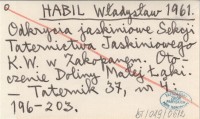 HABIL Władysław 1961.
Odkrycia jaskiniowe Sekcji
Taternictwa Jaskiniowego
K.W. w Zakopanem. Oto-
czenie Doliny Małej Łąki.
— Taternik 37, nr 4:
196-203.